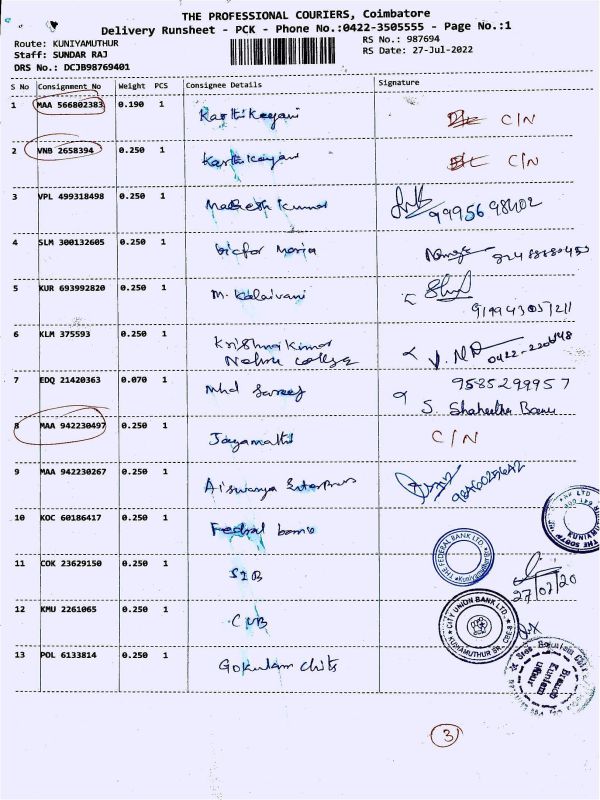 THE PROFESSIONAL COURIERS, Coimbatore
Delivery Runsheet - PCK - Phone No.:0422-3505555 - Page No.:1
Route: KUNIYAMUTHUR
RS No.: 987694
Staff: SUNDAR RAJ
RS Date: 27-Jul-2022
DRS No.: DCJB98769401
S No Consignment No Weight PCS Consignee Details Signature
1 MAA 566802383 0.190 1 Karthikeyani C/N
2 VNB 2658394 0.250 1 Karthikeyani C/N
3 VPL 499318498 0.250 1 Mahesh Kumar
4 SLM 300132605 0.250 1 Victor Maria
5 KUR 693992820 0.250 1 M. Kalaivani
6 KLM 375593 0.250 1 Krishna Kumar
Nehru College
7 EDQ 21420363 0.070 1 Mhd Sareef 9585299957
S. Shaheetha Banu
8 MAA 942230497 0.250 1 Jayamathi C/N
9 MAA 942230267 0.250 1 Aiswarya Enterprises
10 KOC 60186417 0.250 1 Fedral
THE FEDERAL BANK LTD.
11 COK 23629150 0.250 1 SIB
27/07/20
12 KMU 2261065 0.250 1 CUB
CITY UNION BANK LTD.
13 POL 6133814 0.250 1 Gokulam Chits
3